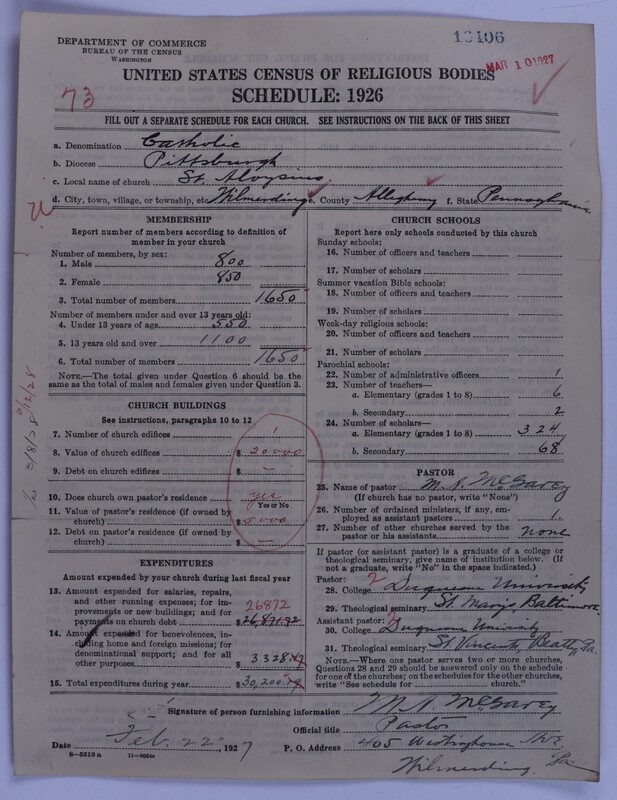 DEPARTMENT OF COMMERCE
BUREAU OF THE CENSUS
WASHINGTON
13106
MAR 10 1927
UNITED STATES CENSUS OF RELIGIOUS BODIES
SCHEDULE: 1926
73
FILL OUT A SEPARATE SCHEDULE FOR EACH CHURCH. SEE INSTRUCTIONS ON THE BACK OF THIS SHEET
a. Denomination Catholic
b. Diocese Pittsburgh
c. Local name of church St. Aloysius
d. City, town, village, or township, etc. Wilmerding e. County Allegheny f. State Pennsylvania
MEMBERSHIP
Report number of members according to definition of
member in your church
Number of members, by sex:
1. Male 800
2. Female 850
3. Total number of members 1650
Number of members under and over 13 years old:
4. Under 13 years of age 550
5. 13 years old and over 1100
6. Total number of members 1650
NOTE.—The total given under Question 6 should be
the same as the total of males and females given under Question 3.
CHURCH BUILDINGS
See instructions, paragraphs 10 to 12
7. Number of church edifices 1
8. Value of church edifices $ 20000
9. Debt on church edifices $ —
10. Does church own pastor's residence yes
Yes or No
11. Value of pastor's residence (if owned by
church) $ 5000
12. Debt on pastor's residence (if owned by
church) $ —
EXPENDITURES
Amount expended by your church during last fiscal year
13. Amount expended for salaries, repairs,
and other running expenses; for improvements
or new buildings; and for
payments on church debt 26872 $ 26,871.92
14. Amount expended for benevolences, including
home and foreign missions; for
denominational support; and for all
other purposes $ 3328
15. Total expenditures during year $ 30,200
CHURCH SCHOOLS
Report here only schools conducted by this church
Sunday schools:
16. Number of officers and teachers
17. Number of scholars
Summer vacation Bible schools:
18. Number of officers and teachers
19. Number of scholars
Week-day religious schools:
20. Number of officers and teachers
21. Number of scholars
Parochial schools:
22. Number of administrative officers 1
23. Number of teachers—
a. Elementary (grades 1 to 8) 6
b. Secondary 2
24. Number of scholars—
a. Elementary (grades 1 to 8) 324
b. Secondary 68
PASTOR
25. Name of pastor M. N. McGarey
(If church has no pastor, write "None")
26. Number of ordained ministers, if any, employed
as assistant pastors 1
27. Number of other churches served by the
pastor or his assistants none
If pastor (or assistant pastor) is a graduate of a college or
theological seminary, give name of institution below. (If
not a graduate, write "No" in the space indicated.)
Pastor: 2
28. College Duquesne University
29. Theological seminary St. Marys Baltimore
Assistant pastor:
30. College Duquesne University
31. Theological seminary St. Vincents, Beatty Pa.
NOTE.—Where one pastor serves two or more churches,
Questions 28 and 29 should be answered only on the schedule
for one of the churches; on the schedules for the other churches,
write "See schedule for church."
Signature of person furnishing information M. N. McGarey
Official title Pastor
Date Feb. 22 1927 P. O. Address 405 Westinghouse Ave
Wilmerding. Pa
8—5518a